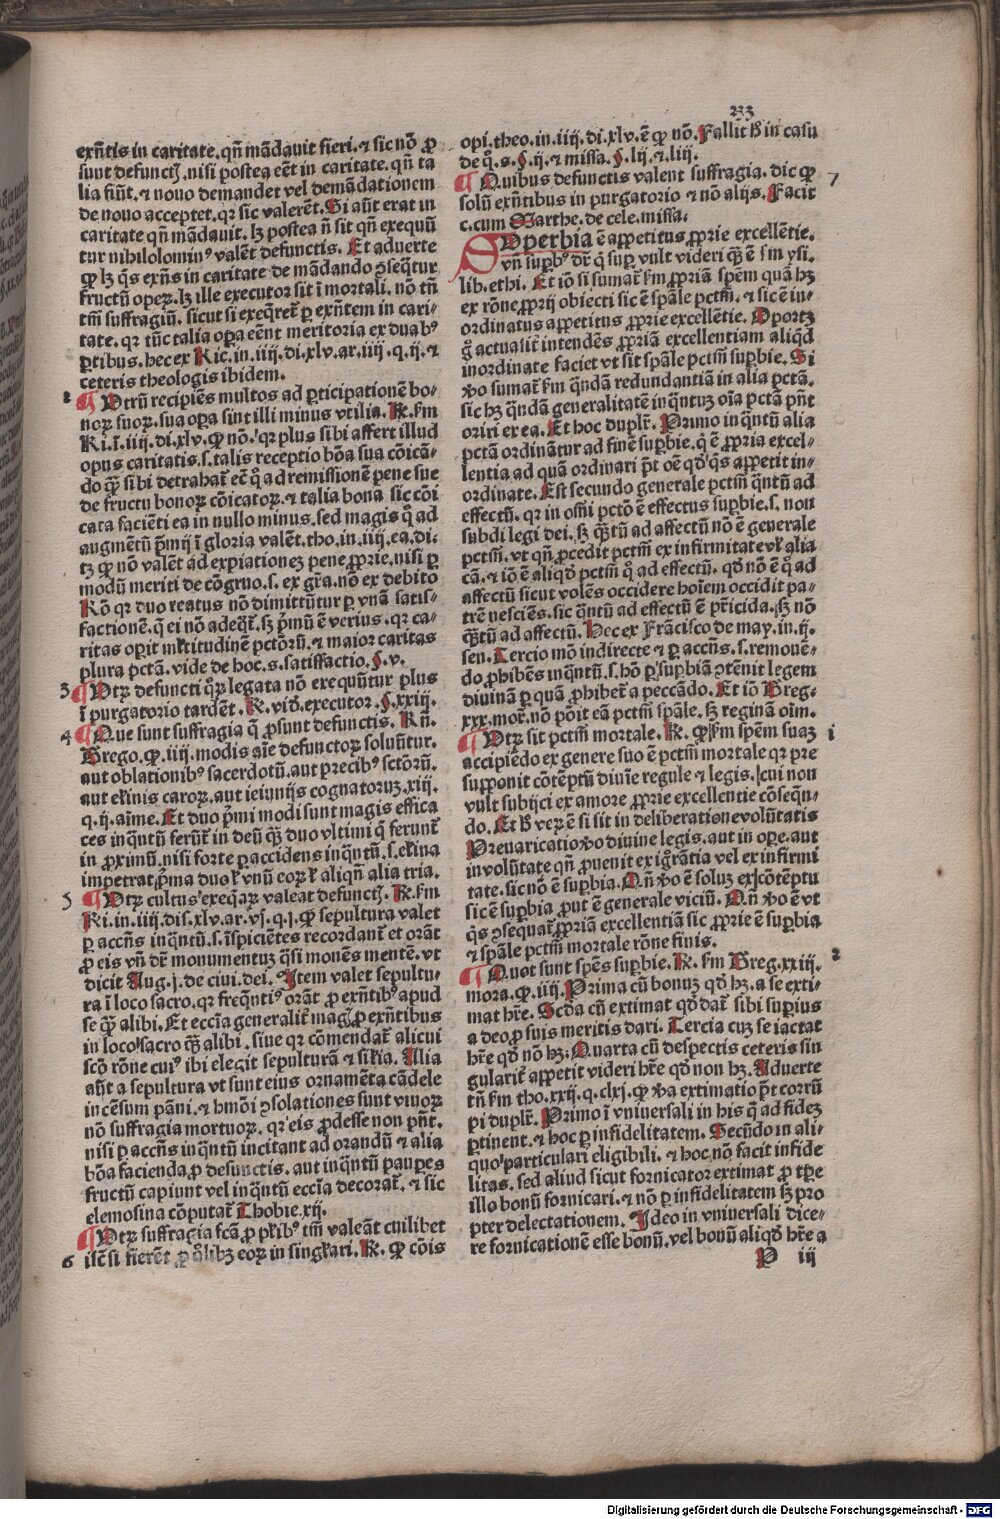 233
exñtis in caritate. qñ mãdauit fieri. ⁊ sic nõ ꝓ
sunt defunctꝭ. nisi postea eẽt in caritate. qñ ta
lia fiũt. ⁊ nouo demandet vel demãdationem
de nouo acceptet. qꝛ sic valerẽt. Si aũt erat in
caritate qñ mãdauit. lꝫ postea ñ sit qñ exequũ
tur nihilolominꝰ valẽt defunctis. Et aduerte
ꝙ lꝫ q̃s exñs in caritate de mãdando ꝯseq̃tur
fructũ operꝝ. lꝫ ille executor sit ĩ mortali. nõ tñ
tm̃ suffragiũ. sicut si exeq̃ret̃ ꝑ exñtem in cari-
tate. qꝛ tũc talia oꝑa eẽnt meritoria ex duabꝰ
ꝑtibus. hec ex Ric. in. iiij. di. xlv. ar. iiij. q. ij. ⁊
ceteris theologis ibidem.
2 ¶ Vtrũ recipiẽs multos ad ꝑticipationẽ bo-
norꝝ suorꝝ. sua oꝑa sint illi minus vtilia. R̃. ẜm
Ri. ĩ. iiij. di. xlv. ꝙ nõ. qꝛ plus sibi affert illud
opus caritatis. s. talis receptio bõa sua cõicã-
do q̃ȝ sibi detrahat̃ eẽt q̊ ad remissionẽ pene sue
de fructu bonorꝝ cõicatorꝝ. ⁊ talia bona sic cõi
cata faciẽti ea in nullo minus. sed magis q̊ ad
augmẽtũ p̃mij ĩ gloria valẽt. tho. in. iiij. ea. di-
tꝫ ꝙ nõ valẽt ad expiationeȝ pene ꝓprie. nisi ꝑ
modũ meriti de cõgruo. s. ex gr̃a. nõ ex debito
Rõ qꝛ duo reatus nõ dimittũtur ꝑ vnã satis-
factionẽ. q̃ ei nõ adeq̃t̃. sꝫ p̃mũ ẽ verius. qꝛ ca-
ritas oꝑit mk̃titudinẽ pctõrũ. ⁊ maior caritas
plura pctã. vide de hoc. s. satisfactio. §. v.
3 ¶ Vtrꝝ defuncti q̊rꝝ legata nõ exequũtur plus
ĩ purgatorio tardẽt. R̃. vid̃. executor. §. xxiij.
4 ¶ Que sunt suffragia q̃ ꝓsunt defunctis. Rñ.
Grego. ꝙ. iiij. modis aĩe defunctorꝝ soluũtur.
aut oblationibꝰ sacerdotũ. aut precibꝰ sctõrũ.
aut ełinis carorꝝ. aut ieiunijs cognatoruȝ. xiij.
q. ij. aĩme. Et duo p̃mi modi sunt magis effica
ces inq̃ntũ ferũt̃ in deũ q̃ȝ duo vltimi q̃ ferunt̃
in ꝓximũ. nisi forte ꝑ accidens inq̃ntũ. s. ełina
impetrat p̃ma duo ł vnũ eorꝝ ł aliqñ alia tria.
5 ¶ Vtrꝝ cultus exeq̃arꝝ valeat defunctꝭ. R̃. ẜm
Ri. in. iiij. dis. xlv. ar. vj. q. j. ꝙ sepultura valet
ꝑ accñs inq̃ntũ. s. ĩspiciẽtes recordant̃ et orãt
ꝓ eis vñ dr̃ monumentuȝ q̃si monẽs mentẽ. vt
dicit Aug. j. de ciui. dei. Item valet sepultu-
ra ĩ loco sacro. qꝛ freq̃ntiꝰ orãt ꝓ exñtibꝰ apud
se q̃ȝ alibi. Et eccĩa generalit̃ magꝭ ꝓ exñtibus
in loco sacro q̃ȝ alibi. siue qꝛ cõmendat̃ alicui
scõ rõne cuiꝰ ibi elegit sepulturã ⁊ siłia. Alia
aũt a sepultura vt sunt eius ornamẽta cãdele
incẽsum pãni. ⁊ hmõi ꝯsolationes sunt viuorꝝ
nõ suffragia mortuorꝝ. qꝛ eis ꝓdesse non pñt.
nisi ꝑ accñs inq̃ntũ incitant ad orandũ ⁊ alia
bõa facienda ꝓ defunctis. aut inq̃ntũ pauꝑes
fructũ capiunt vel inq̃ntũ eccĩa decorat̃. ⁊ sic
elemosina cõputat̃ Thobie. xij.
¶ Vtrꝝ suffragia fcã ꝓ płibꝰ tm̃ valeãt cuilibet
6 ac̃ si fierẽt ꝓ q̊libꝫ eorꝝ in singłari. R̃. ꝙ cõis
opi. theo. in. iiij. di. xlv. ẽ ꝙ nõ. Fallit ẜ in casu
de q̊. s. §. ij. ⁊ missa. §. lij. ⁊. liij.
¶ Quibus defunctis valent suffragia. dic ꝙ 7
solũ exñtibus in purgatorio ⁊ nõ alijs. Facit
c. cum Marthe. de cele. missa.
SVperbia ẽ appetitus ꝓprie excellẽtie.
vñ suꝑbꝰ dr̃ q̃ suꝑ vult videri q̃ȝ ẽ ẜm ysi.
lib. ethi. Et iõ si sumat̃ ẜm ꝓpriã spẽm quã hꝫ
ex rõne ꝓprij obiecti sic ẽ spãle pctm̃. ⁊ sic ẽ in-
ordinatus appetitus ꝓprie excellẽtie. Oportꝫ
g̊ actualit̃ intendẽs ꝓpriã excellentiam aliq̃d
inordinate faciet vt sit spãle pctm̃ suꝑbie. Si
ṽo sumat̃ ẜm q̃ndã redundantiã in alia pctã.
sic hꝫ q̃ndã generalitatẽ inq̃ntuȝ oĩa pctã pñt
oriri ex ea. Et hoc duplr̃. Primo inq̃ntũ alia
pctã ordinãtur ad finẽ suꝑbie. q̃ ẽ ꝓpria excel-
lentia ad quã ordinari p̃t oẽ qd̃ q̃s appetit in-
ordinate. Est secundo generale pctm̃ q̃ntũ ad
effectũ. qꝛ in om̃i pctõ ẽ effectus suꝑbie. s. non
subdi legi dei. sꝫ q̃ȝtũ ad affectũ nõ ẽ generale
pctm̃. vt qñ ꝓcedit pctm̃ ex infirmitate vł alia
cã. ⁊ iõ ẽ aliqd̃ pctm̃ q̊ ad effectũ. qd̃ nõ ẽ q̊ ad
affectũ sicut volẽs occidere hoĩem occidit pa-
trẽ nesciẽs. sic q̃ntũ ad effectũ ẽ pr̃icida. sꝫ nõ
q̃ȝtũ ad affectũ. Hec ex Frãcisco de may. in. ij.
sen. Tercio mõ indirecte ⁊ ꝑ accñs. s. remouẽ-
do ꝓhibẽs inq̃ntũ. s. hõ ꝑ suꝑbiã ꝯtẽnit legem
diuinã ꝑ quã ꝓhibet̃ a peccãdo. Et iõ Greg.
xxx. mor̃. nõ põit eã pctm̃ spãle. sꝫ reginã oĩm.
¶ Vtrꝝ sit pctm̃ mortale. R̃. ꝙ ẜm spẽm suaȝ 1
accipiẽdo ex genere suo ẽ pctm̃ mortale qꝛ pre
supponit cõtẽptũ diuĩe regule ⁊ legis. cui non
vult subijci ex amore ꝓprie excellentie cõseq̃n-
do. Et ẜ verꝝ ẽ si sit in deliberatione volũtatis
Preuaricatio ṽo diuine legis. aut in oꝑe. aut
inuolũtate qñ ꝓuenit ex ig̊rãtia vel ex infirmi
tate. sic nõ ẽ suꝑbia. Qñ ṽo ẽ soluȝ ex cõtẽptu
sic ẽ suꝑbia ꝓut ẽ generale viciũ. Qñ ṽo ẽ vt
q̃s ꝯsequat̃ ꝓpriã excellentiã sic ꝓprie ẽ suꝑbia
⁊ spãle pctm̃ mortale rõne finis.
¶ Quot sunt spẽs suꝑbie. R̃. ẜm Greg. xxiij. 2
mora. ꝙ. iiij. Prima cũ bonuȝ qd̃ hꝫ. a se exti-
mat hr̃e. Scda cũ extimat qd̃ dat̃ sibi suꝑius
a deo ꝓ suis meritis dari. Tercia cuȝ se iactat
hr̃e qd̃ nõ hꝫ. Quarta cũ despectis ceteris sin
gularit̃ appetit videri hr̃e qd̃ non hꝫ. Aduerte
tñ ẜm tho. xxij. q. clxj. ꝙ ṽa extimatio p̃t corrũ
pi duplr̃. Primo ĩ vniuersali in his q̃ ad fideȝ
ꝑtinent. ⁊ hoc ꝑ infidelitatem. Secũdo in ali-
quo particulari eligibili. ⁊ hoc nõ facit infide
litas. sed aliud sicut fornicator extimat ꝓ tp̃e
illo bonũ fornicari. ⁊ nõ ꝑ infidelitatem sꝫ pro
pter delectationem. Ideo in vniuersali dice-
re fornicationẽ esse bonũ. vel bonũ aliqd̃ hr̃e a
P iij
Digitalisierung gefördert durch die Deutsche Forschungsgemeinschaft - DFG